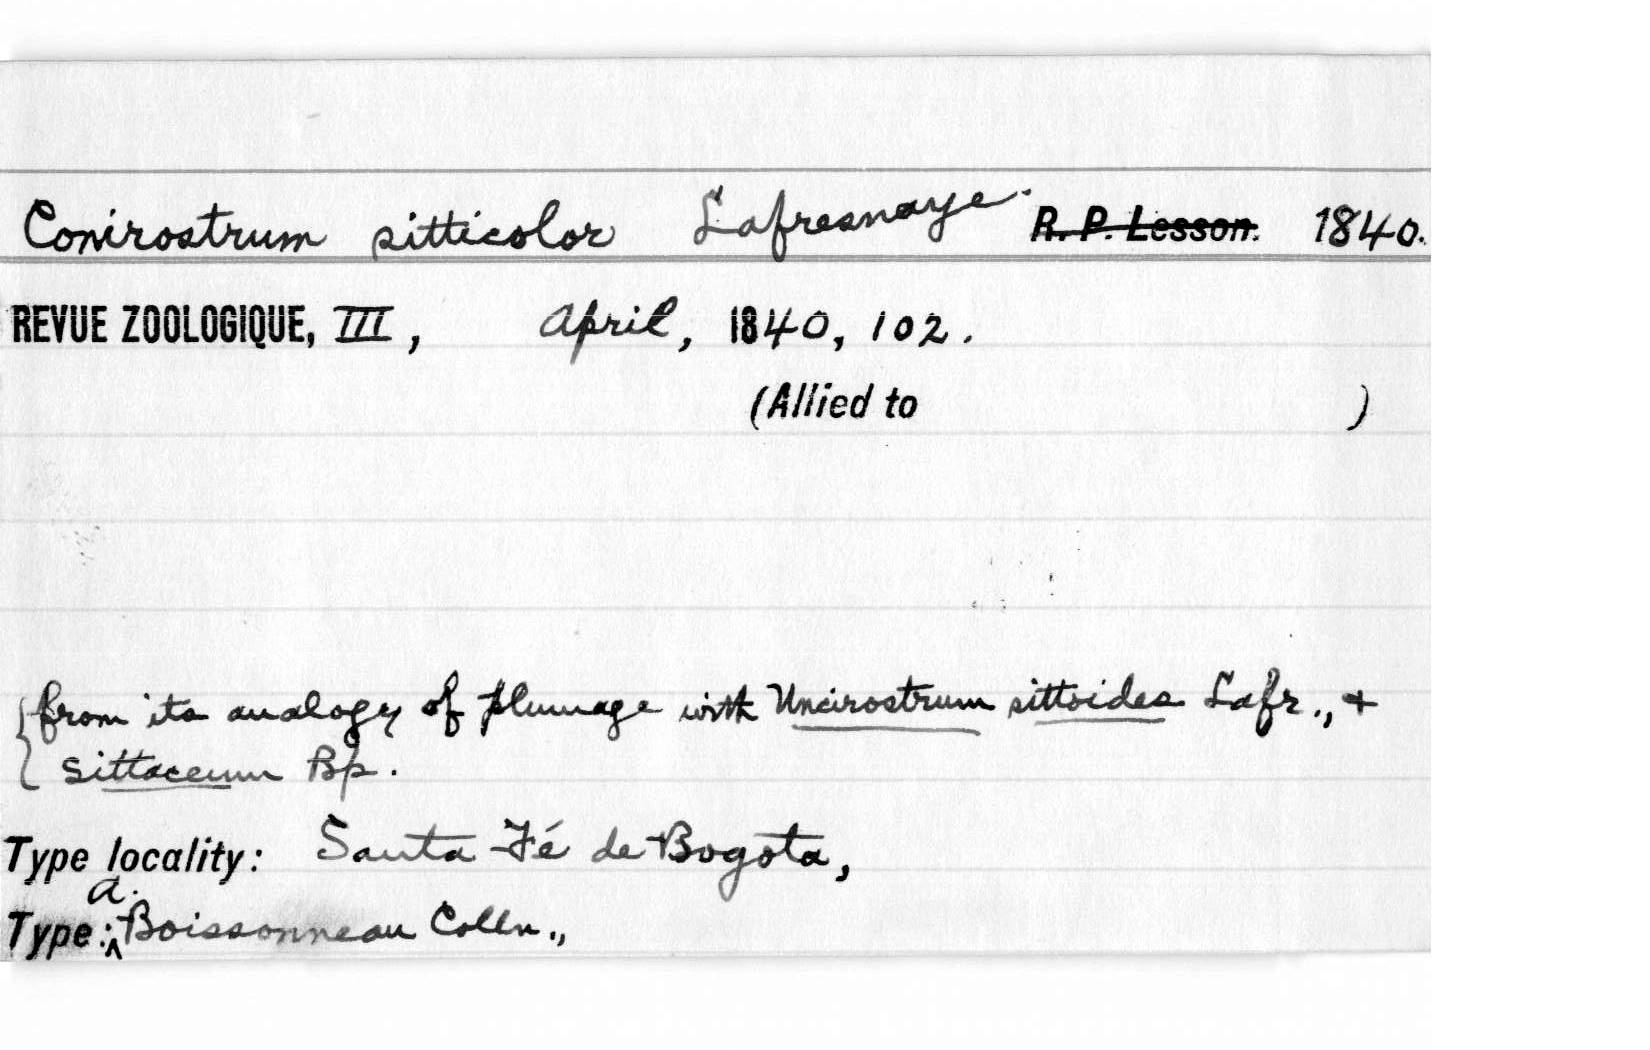 Conirostrum sitticolor Lafresnaye. R. P. Lesson. 1840.
REVUE ZOOLOGIQUE, III, April, 1840, 102.
(Allied to )
{from its analogy of plumage with Uncirostrum sittoides Lafr., +
sittaceum Bp.
Type locality: Santa Fé de Bogota,
Type: A. Boissonneau Colln.,